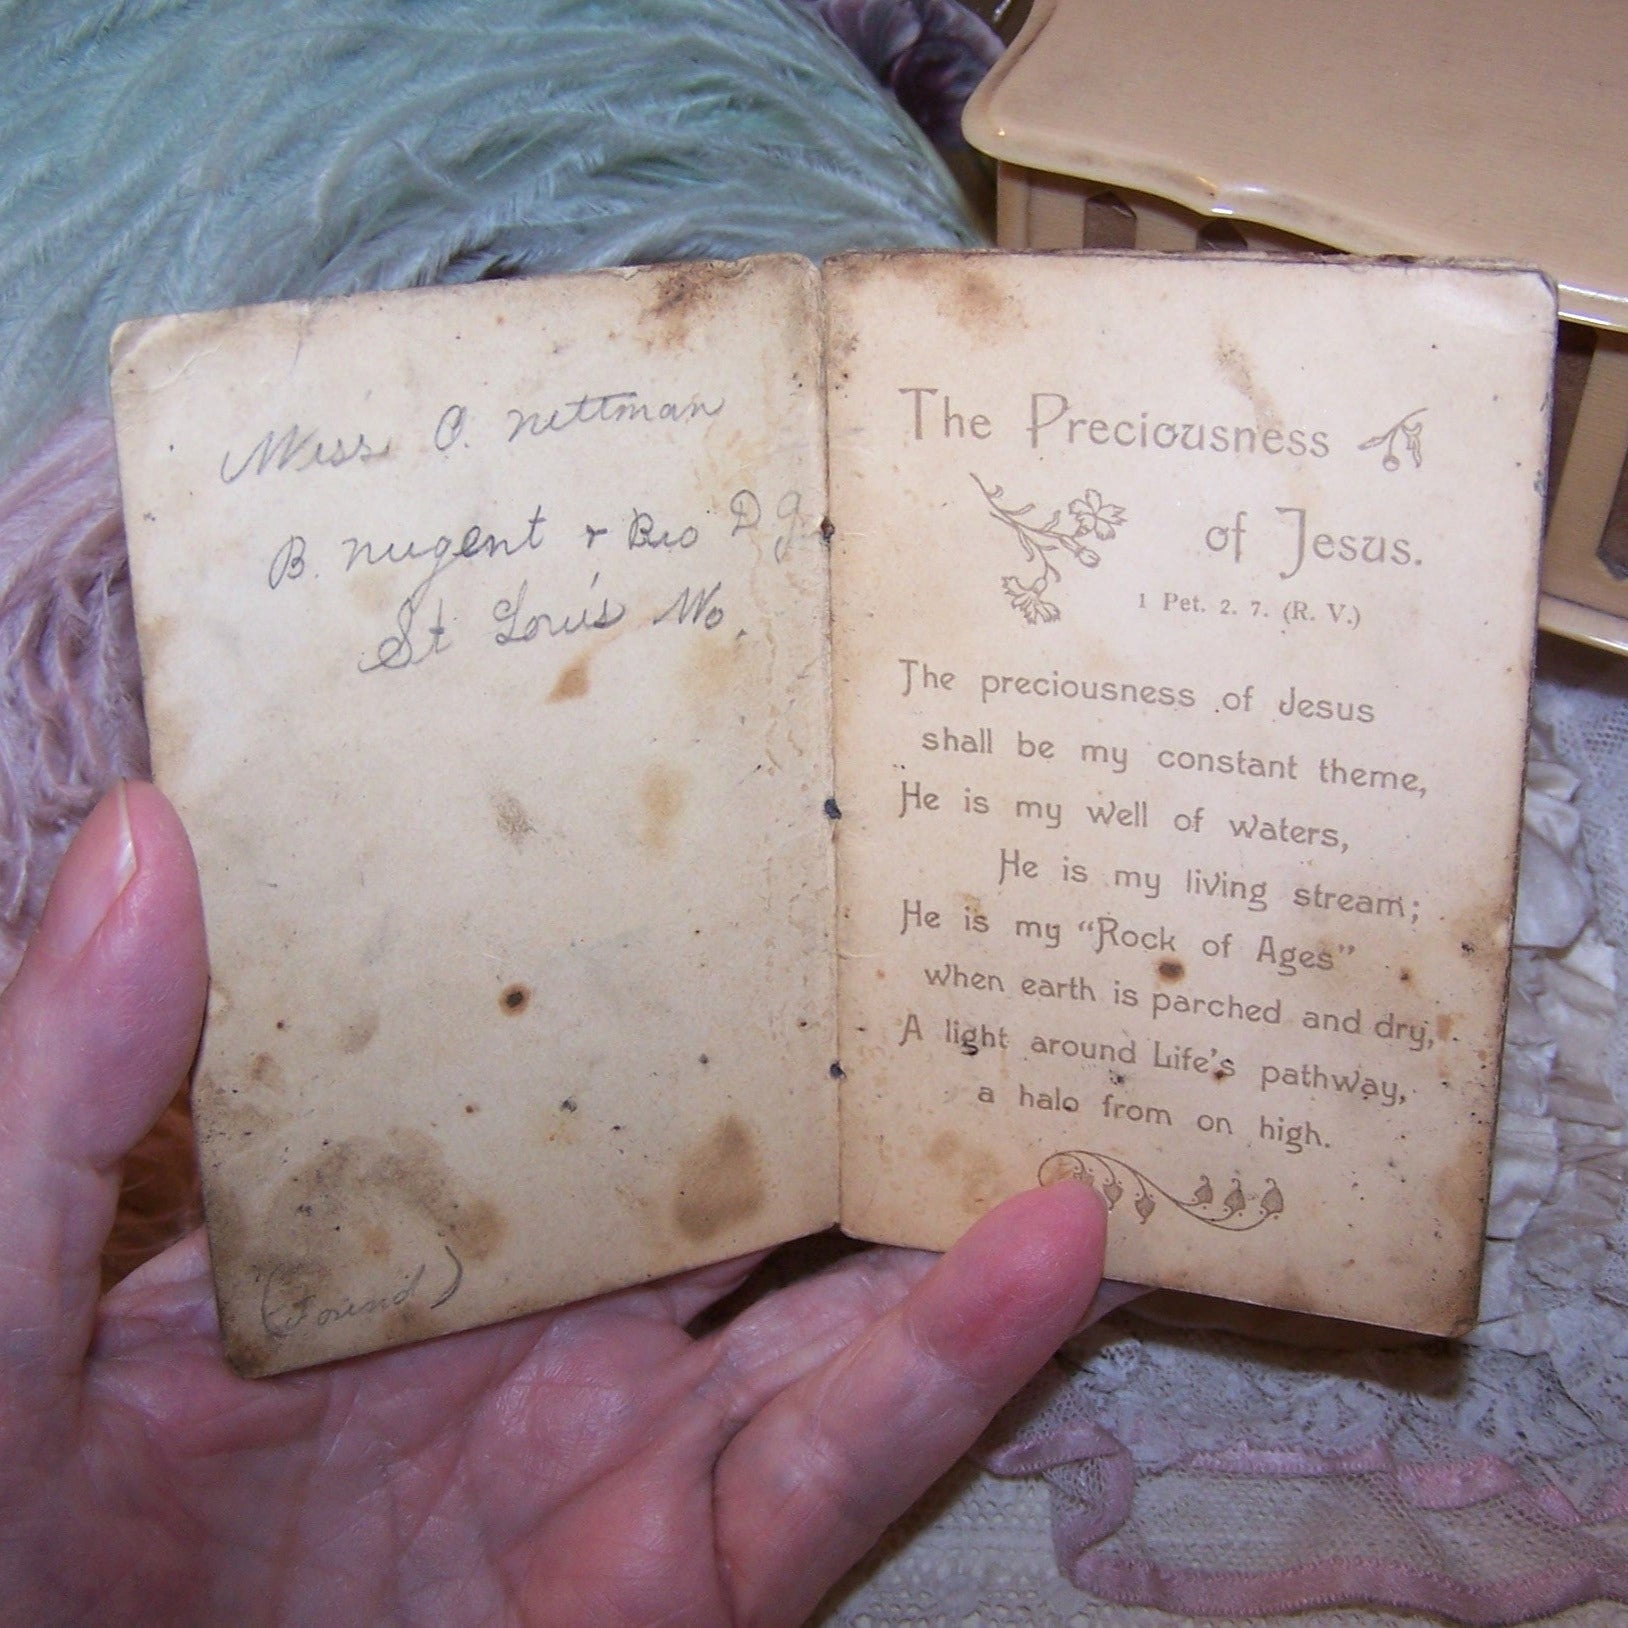 Miss O. Nettman
B. Nugent & Bro D. G.
St Louis Mo.
(Found)
The Preciousness
of Jesus.
1 Pet. 2. 7. (R. V.)
The preciousness of Jesus
shall be my constant theme,
He is my well of waters,
He is my living stream;
He is my “Rock of Ages”
when earth is parched and dry,
A light around Life’s pathway,
a halo from on high.